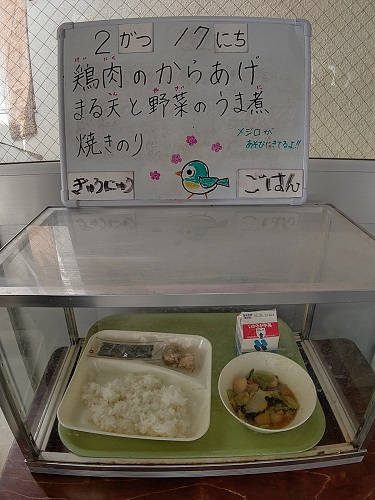 2がつ 17にち
鶏肉のからあげ
まる天と野菜のうま煮
焼きのり
メジロが
あそびにきてるよ!!
ぎゅうにゅう
ごはん